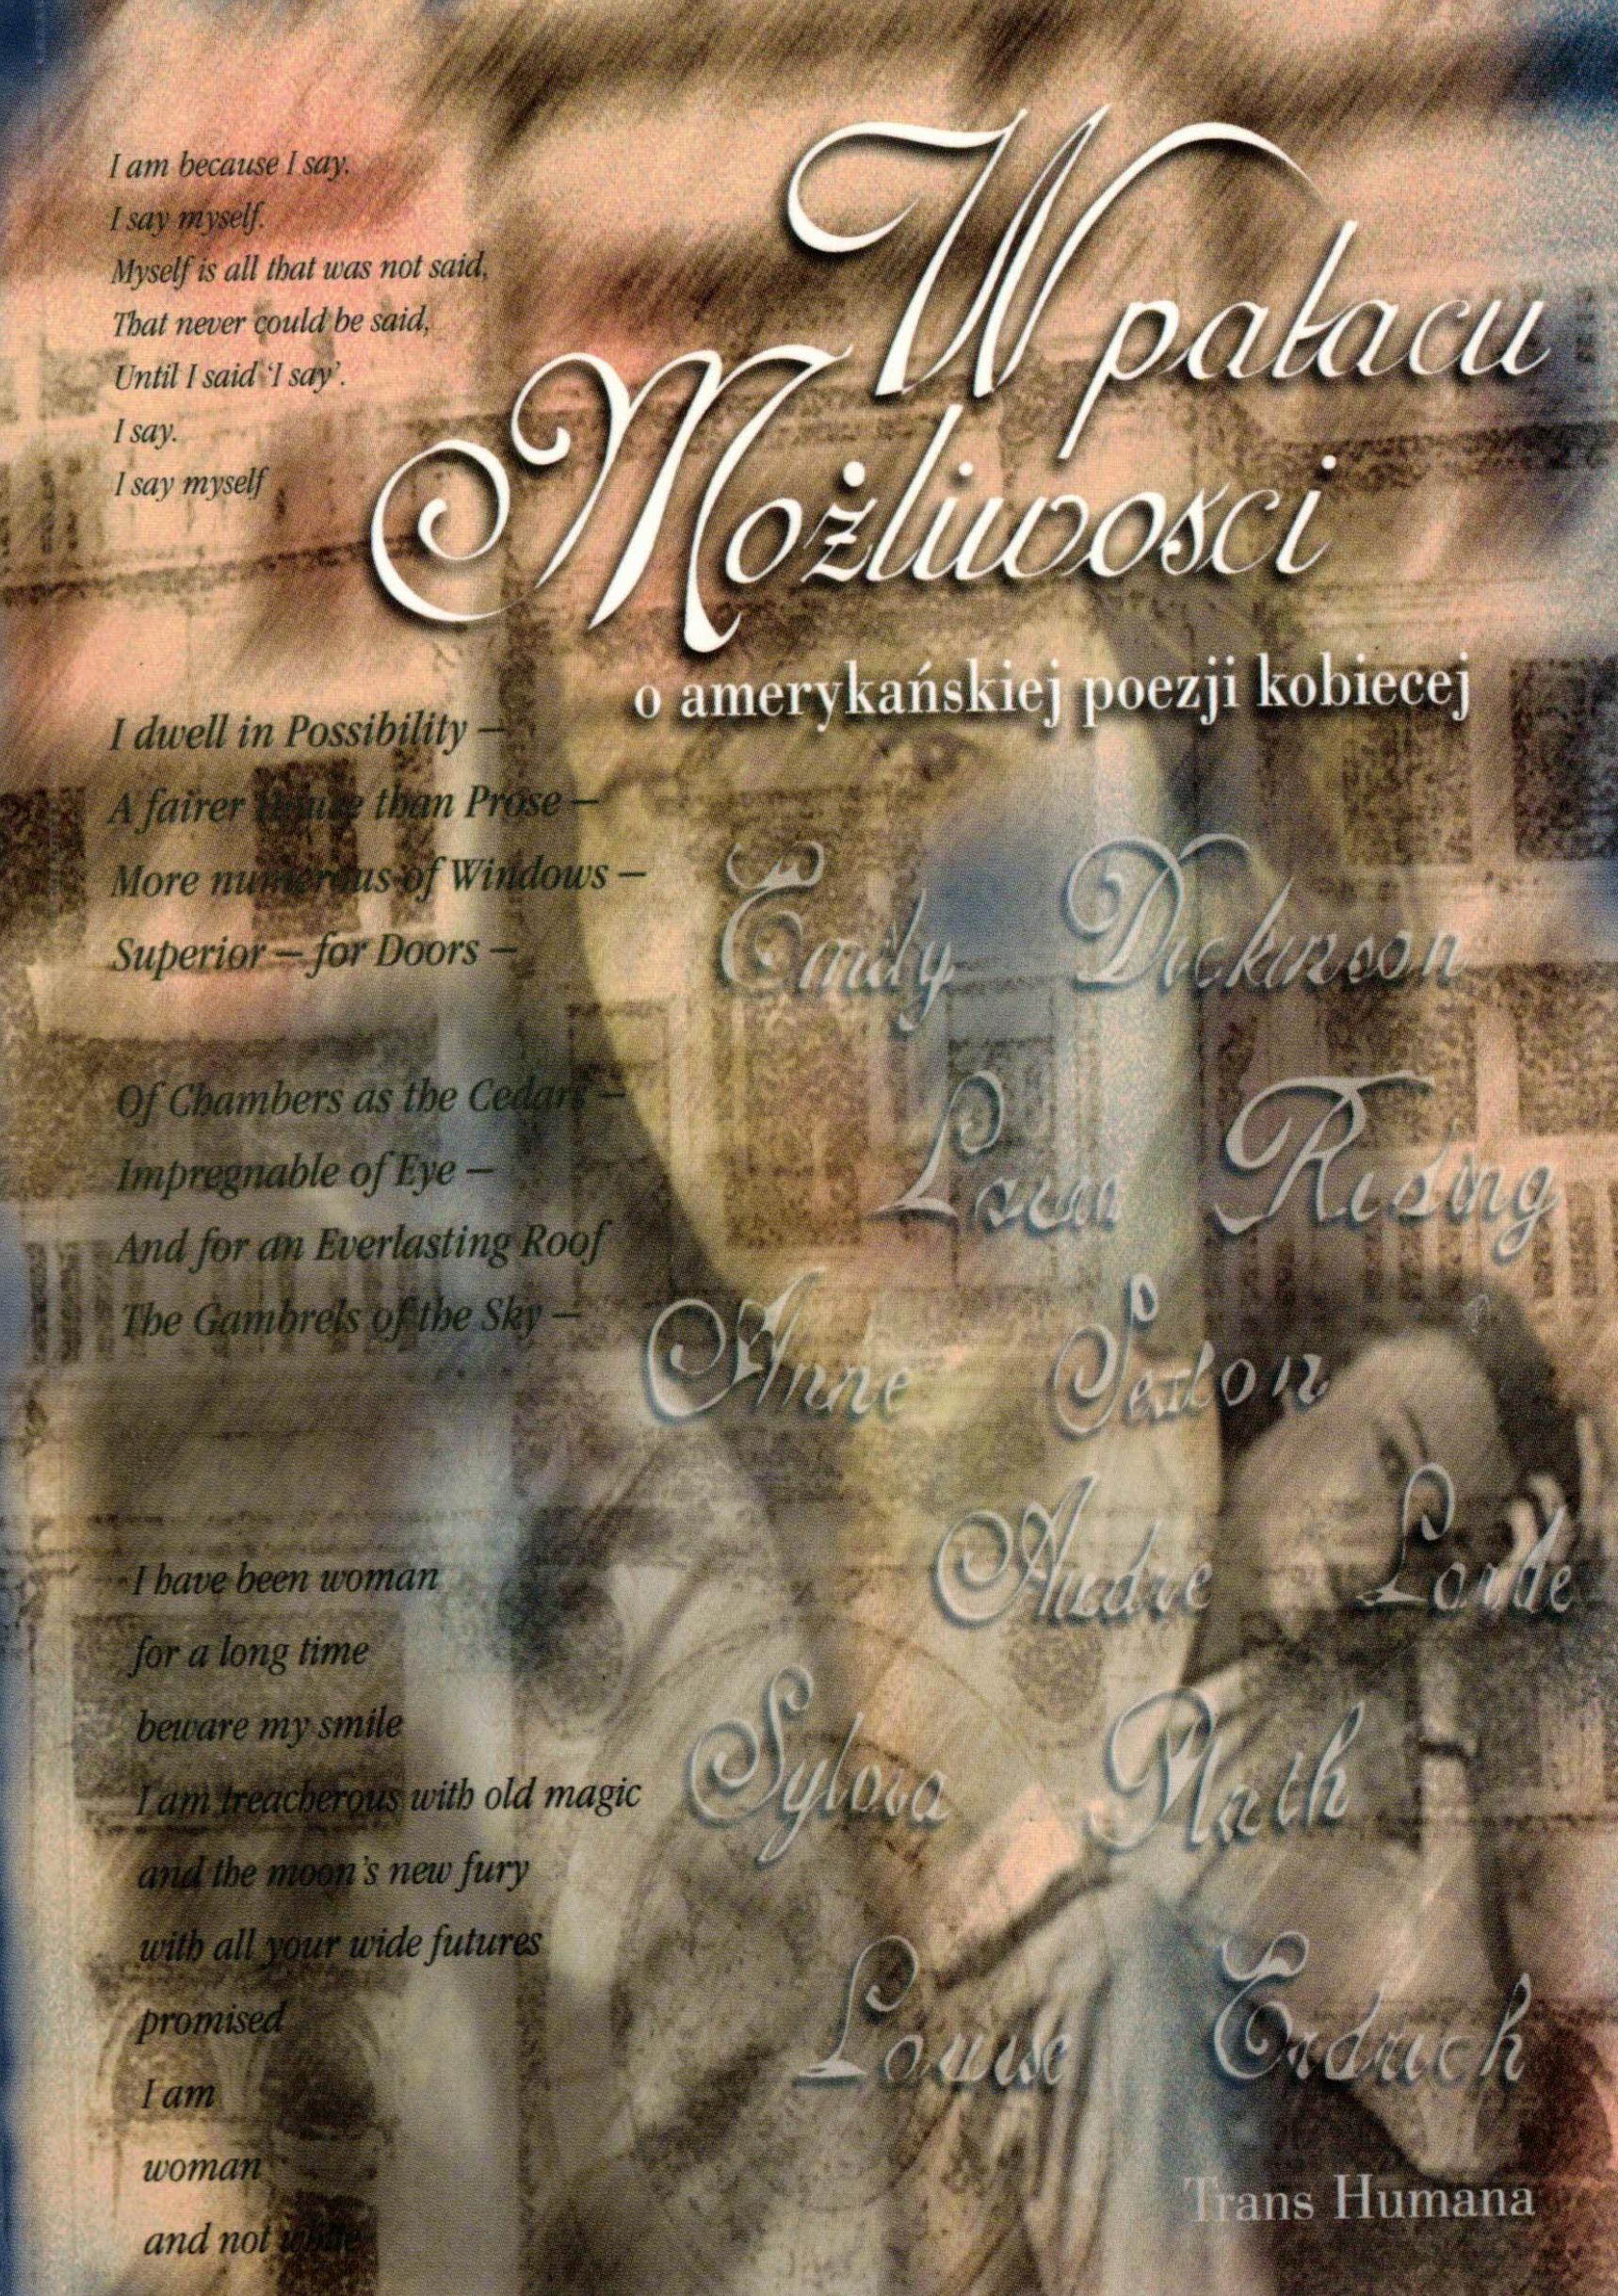 I am because I say.
I say myself.
Myself is all that was not said,
That never could be said,
Until I said ‘I say’.
I say.
I say myself
W pałacu
Możliwości
o amerykańskiej poezji kobiecej
I dwell in Possibility –
A fairer House than Prose –
More numerous of Windows –
Superior – for Doors –
Of Chambers as the Cedars –
Impregnable of Eye –
And for an Everlasting Roof
The Gambrels of the Sky –
I have been woman
for a long time
beware my smile
I am treacherous with old magic
and the moon's new fury
with all your wide futures
promised
I am
woman
and not white
Emily Dickinson
Laura Riding
Anne Sexton
Audre Lorde
Sylvia Plath
Louise Erdrich
Trans Humana